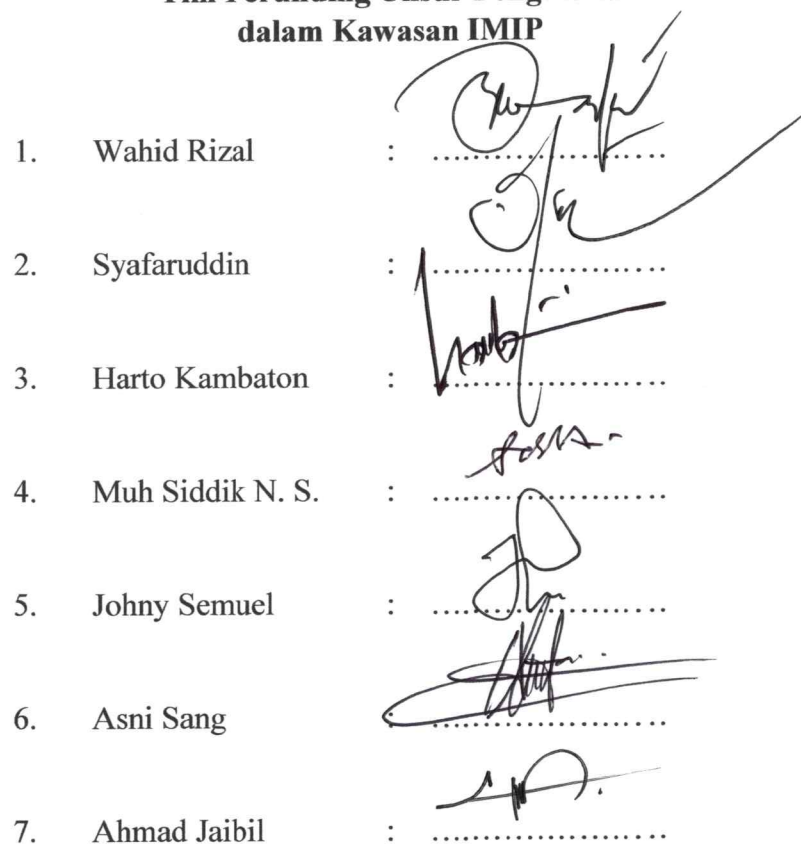 dalam Kawasan IMIP
1. Wahid Rizal : ........................
2. Syafaruddin : ........................
3. Harto Kambaton : ........................
4. Muh Siddik N. S. : ........................
5. Johny Semuel : ........................
6. Asni Sang : ........................
7. Ahmad Jaibil : ........................